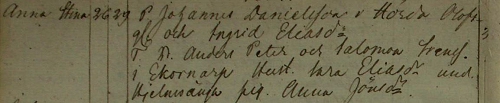 Anna Stina 26 29 P. Johannes Danielsson i Horda Olofs
gl och Ingrid Eliasdr
T. Dr. Anders Peter och Salomon Svens.
i Ekornarp Hust. Sara Eliasdr und.
Hjelmsänga pig. Anna Jönsdr